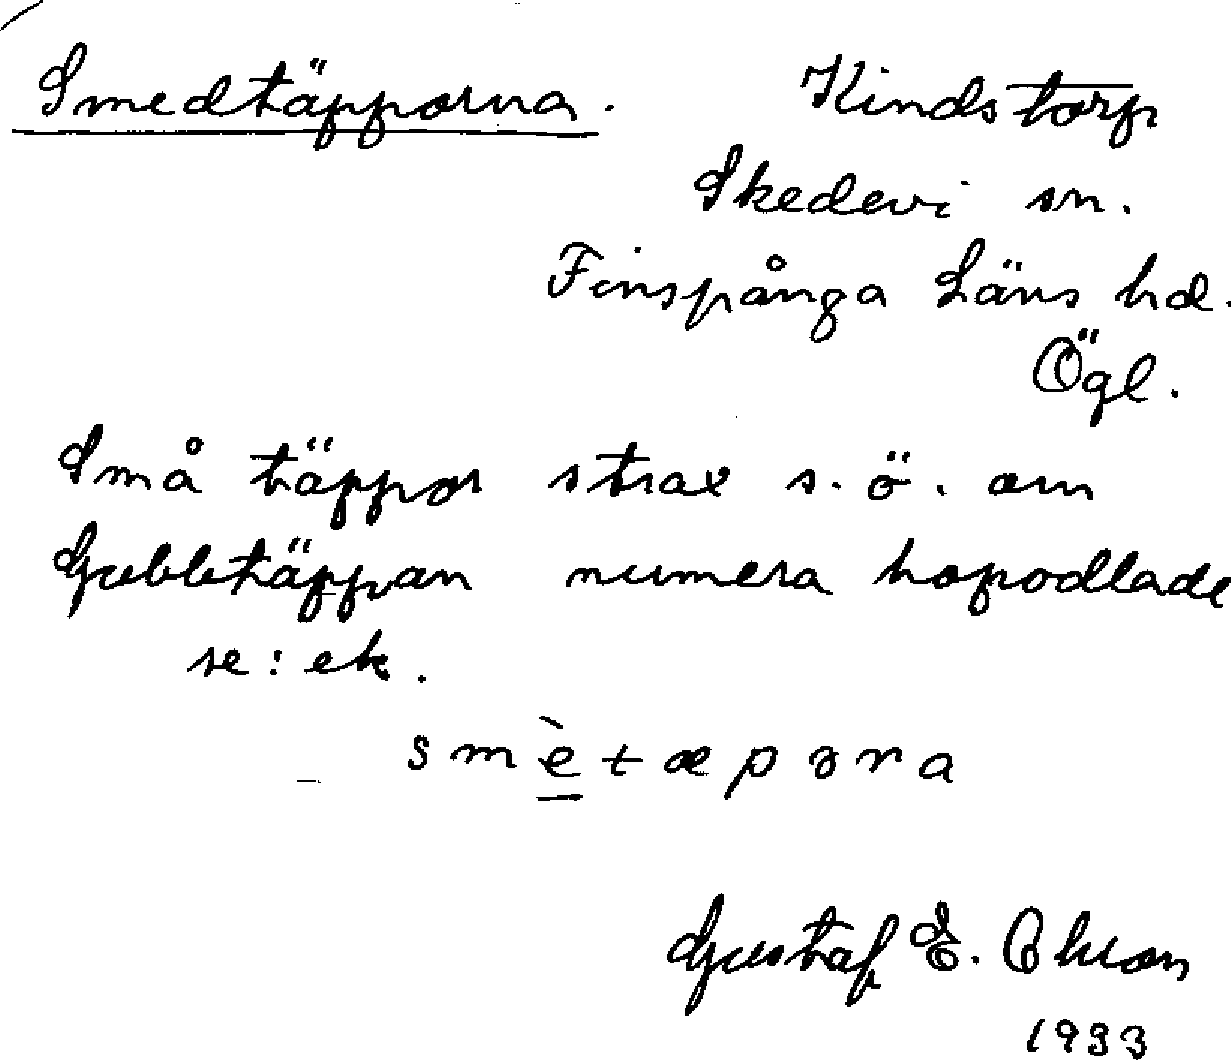 Smedtäpporna. Kindstorp
Skedevi sn.
Finspånga Läns hd.
Ögl.
Små täppor strax s.ö. om
Gubbtäppan numera hopodlade
se: ek.
smètæpɔrna
Gustaf E.
1933